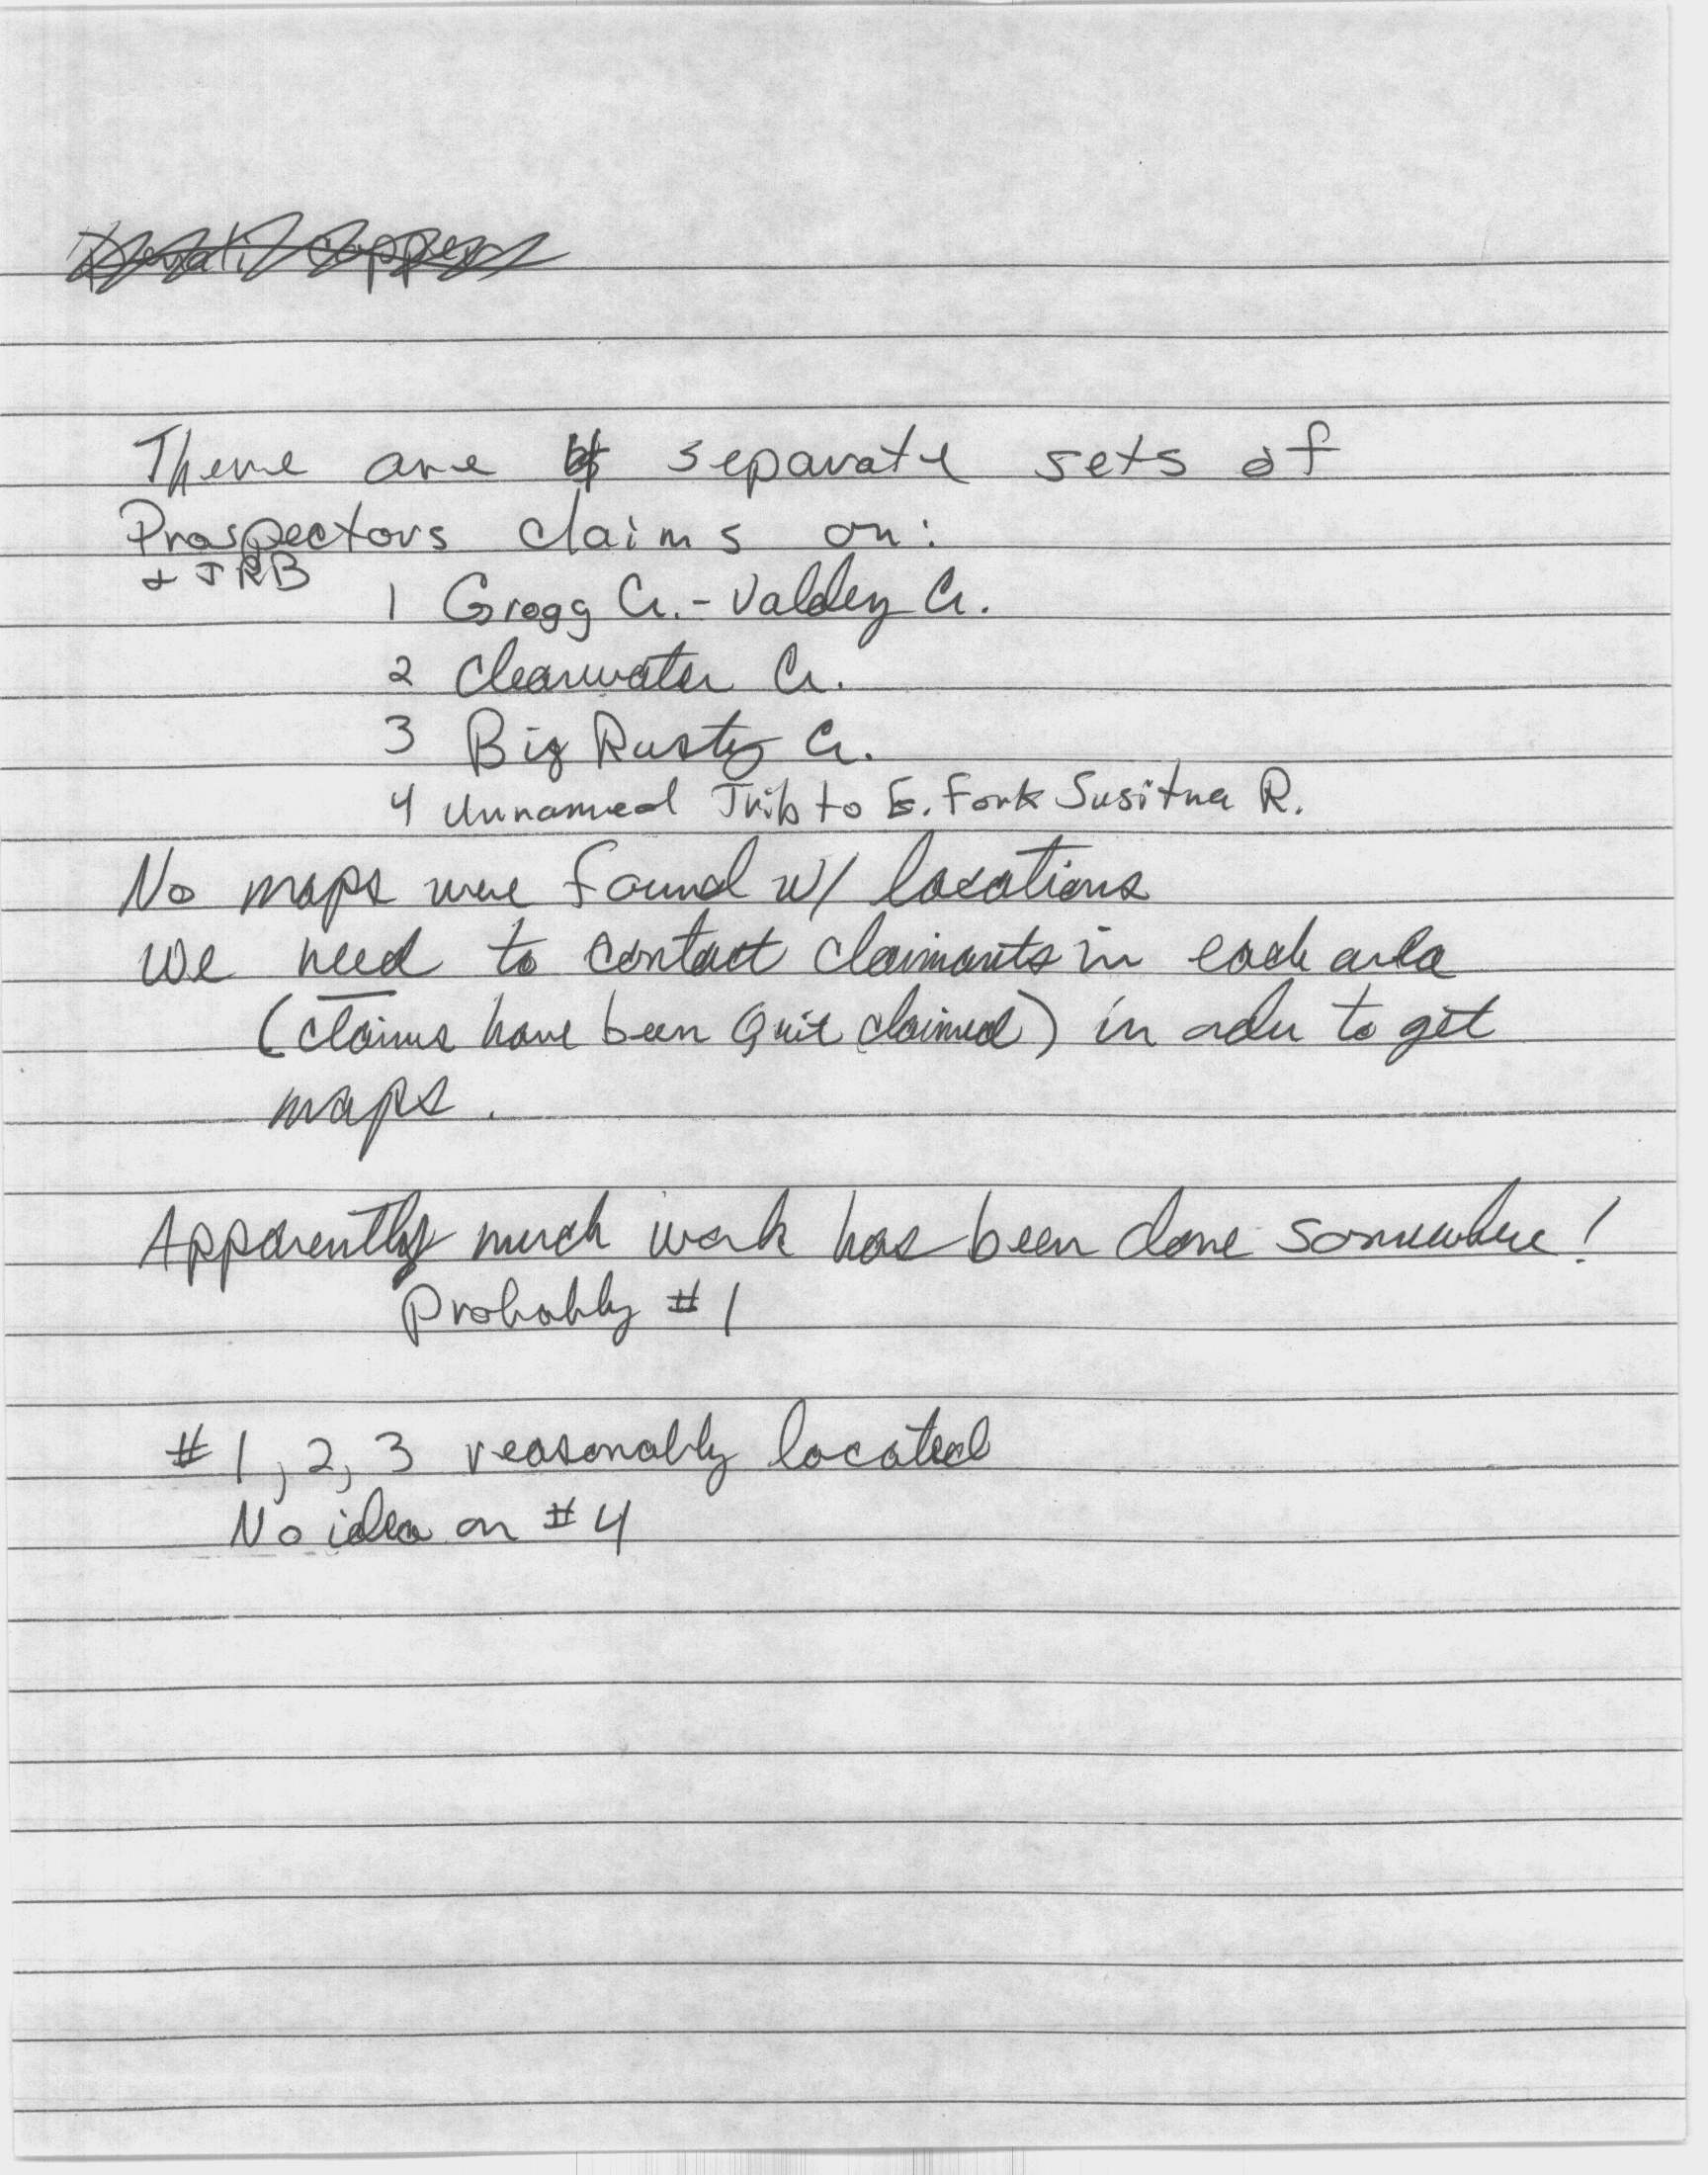 There are 4 separate sets of
Prospectors claims on:
& JRB
1 Grogg Cr. - Valdez Cr.
2 Clearwater Cr.
3 Big Rusty Cr.
4 Unnamed Trib to E. Fork Susitna R.
No maps were found w/ locations
We need to contact claimants in each area
(claims have been Quit claimed) in order to get
maps.
Apparently much work has been done somewhere!
Probably #1
#1, 2, 3 reasonably located
No idea on #4